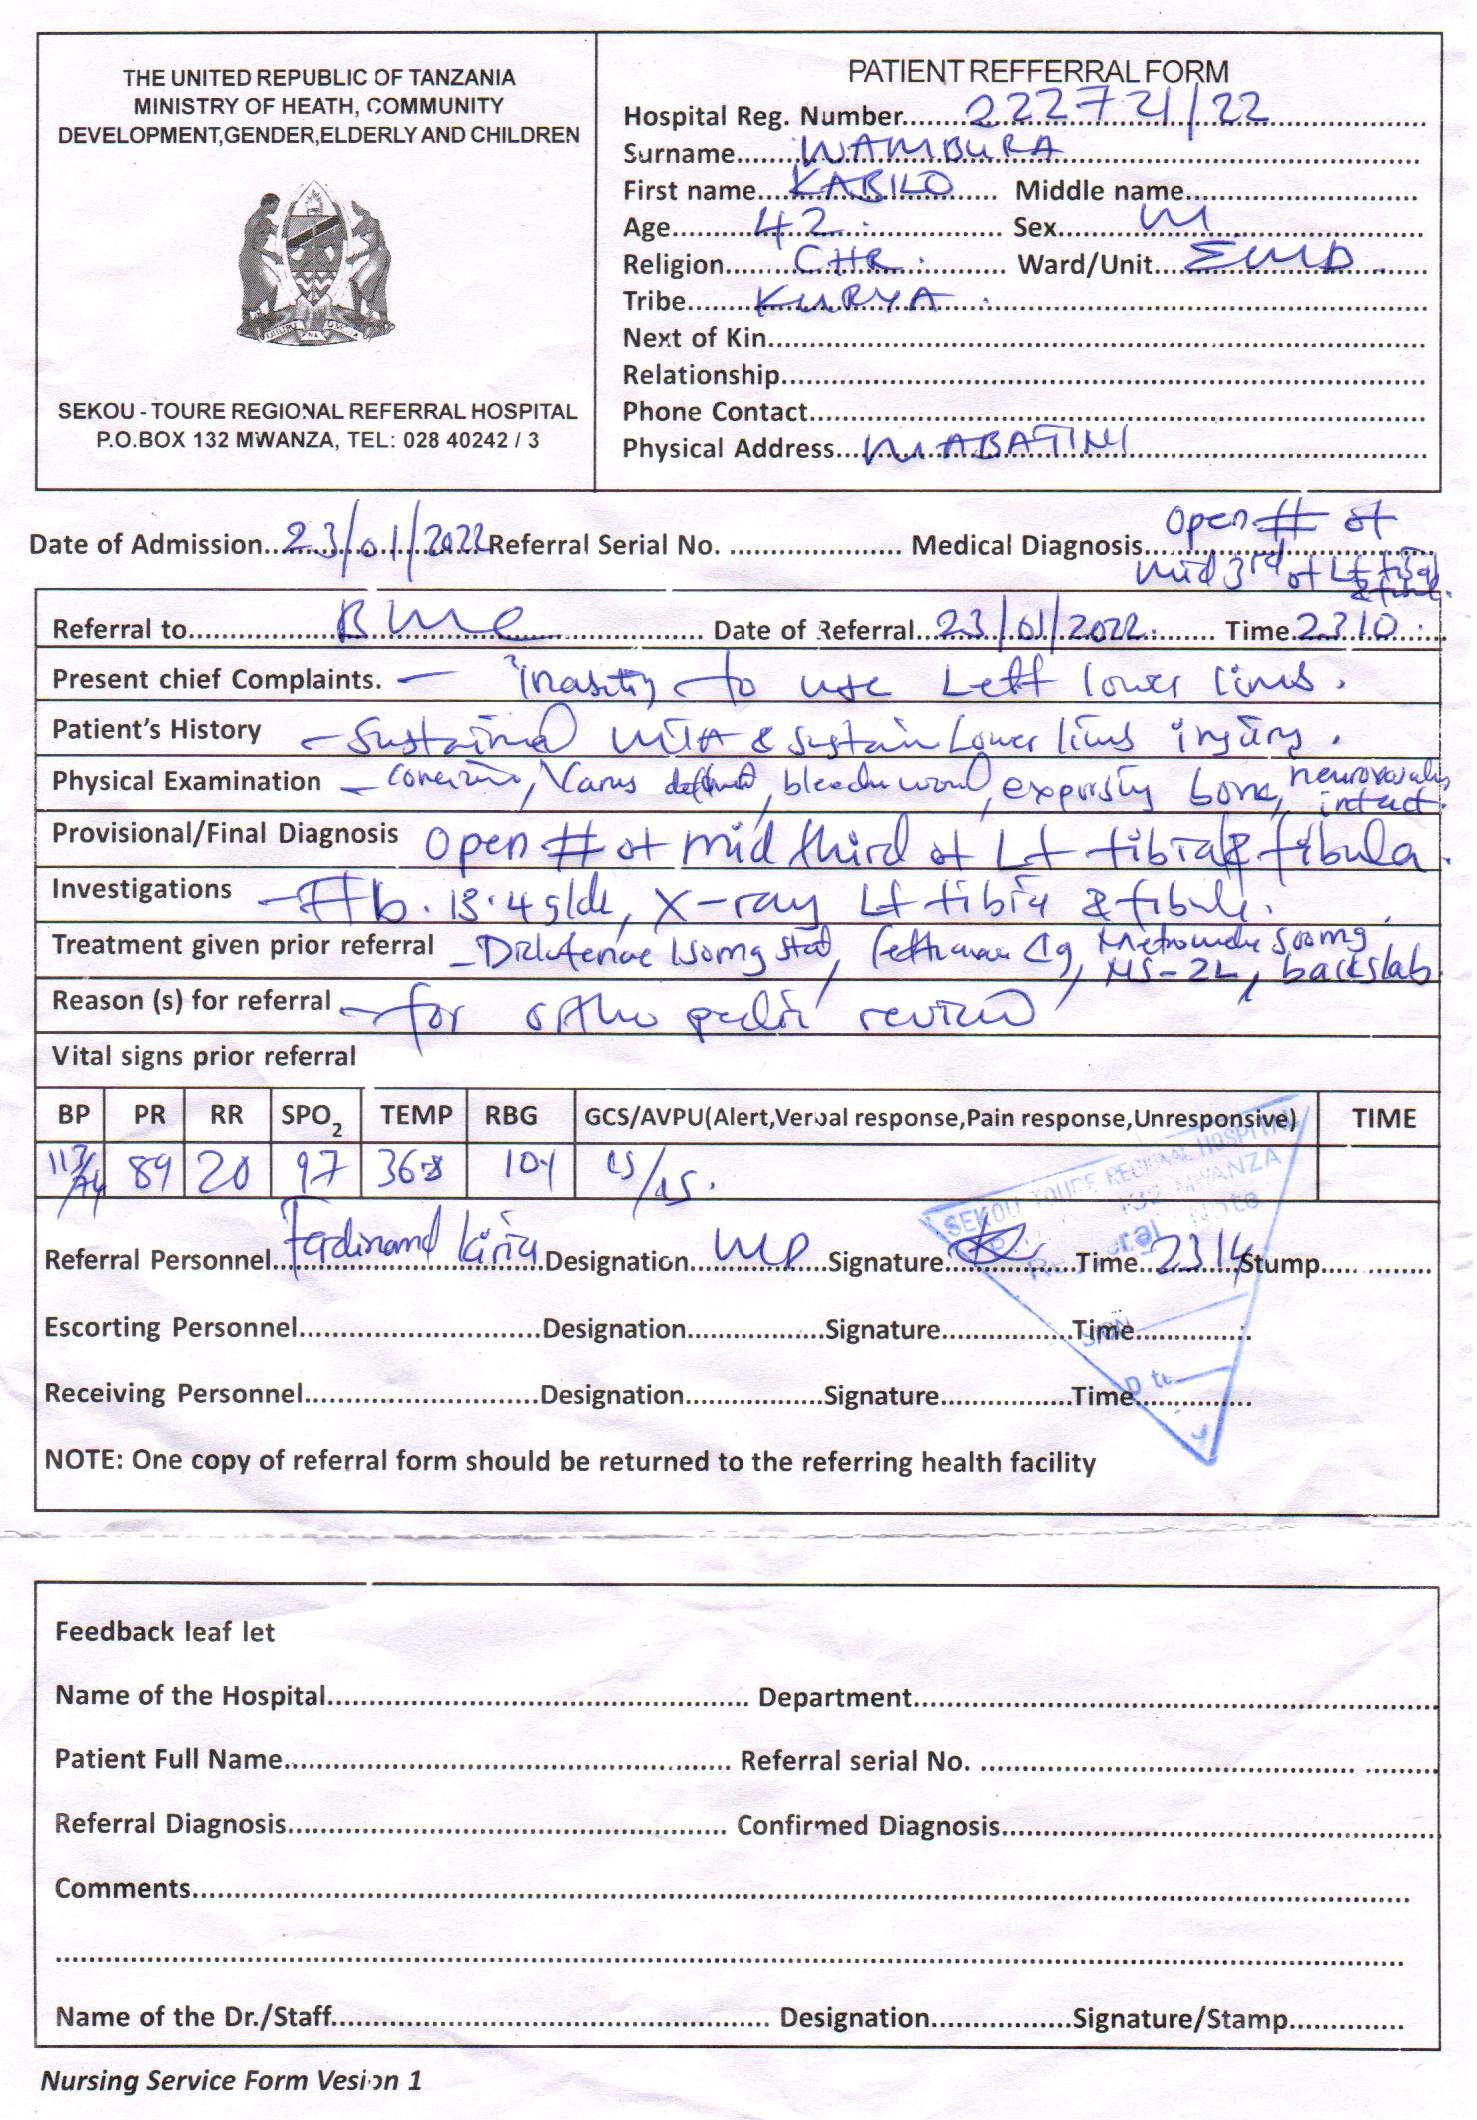 THE UNITED REPUBLIC OF TANZANIA
MINISTRY OF HEATH, COMMUNITY
DEVELOPMENT,GENDER,ELDERLY AND CHILDREN
SEKOU - TOURE REGIONAL REFERRAL HOSPITAL
P.O.BOX 132 MWANZA, TEL: 028 40242 / 3
PATIENT REFFERRAL FORM
Hospital Reg. Number 222721/22
Surname WAMBURA
First name KABILO Middle name
Age 42 Sex M
Religion CHR. Ward/Unit EMD
Tribe KURYA
Next of Kin
Relationship
Phone Contact
Physical Address MABATINI
Date of Admission 23/01/2022 Referral Serial No. Medical Diagnosis Open # of
mid 3rd of Lt
Referral to BMC Date of Referral 23/01/2022 Time 2310
Present chief Complaints. - inability to use Left lower limb.
Patient's History - Sustained & sustain Lower limb injury.
Physical Examination - Varus bone, intact.
Provisional/Final Diagnosis Open # of mid third of Lt tibia & fibula.
Investigations - Hb. 13.4 g/dL, X-ray Lt tibia & fibula.
Treatment given prior referral - stat, 500mg
NS-2L, backslab
Reason (s) for referral - for orthopedic review
Vital signs prior referral
BP PR RR SPO2 TEMP RBG GCS/AVPU(Alert,Verbal response,Pain response,Unresponsive) TIME
113/74 89 20 97 36.8 15/15.
Referral Personnel Ferdinand Designation MD Signature Time 2314 Stump
Escorting Personnel Designation Signature Time
Receiving Personnel Designation Signature Time
NOTE: One copy of referral form should be returned to the referring health facility
SEKOU TOURE REGIONAL HOSPITAL
MWANZA
Feedback leaf let
Name of the Hospital Department
Patient Full Name Referral serial No.
Referral Diagnosis Confirmed Diagnosis
Comments
Name of the Dr./Staff Designation Signature/Stamp
Nursing Service Form Vesion 1